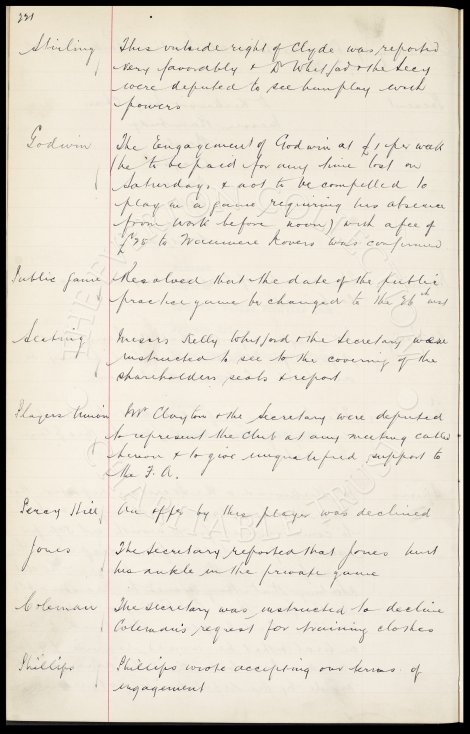 221
Stirling This outside right of Clyde was reported
very favorably & Dr Whitford & the Secy
were deputed to see him play with
powers
Godwin The Engagement of Godwin at £1 per week
(he to be paid for any time lost on
Saturdays & not to be compelled to
play in a game requiring his absence
from work before noon) with a fee of
to Rovers was confirmed
Public game Resolved that the date of the public
practice game be changed to the 26th
Seating Messrs Kelly Whitford & the Secretary were
instructed to see to the covering of the
shareholders seats & report
Players Union Mr Clayton & the Secretary were deputed
to represent the Club at any meeting called
hereon & to give unqualified support to
the F.A.
Percy Hill An offer by this player was declined
Jones The Secretary reported that Jones hurt
his ankle in the private game
Coleman The Secretary was instructed to decline
Coleman's request for training clothes
Phillips Phillips wrote accepting our terms of
engagement
THE EVERTON COLLECTION
CHARITABLE TRUST